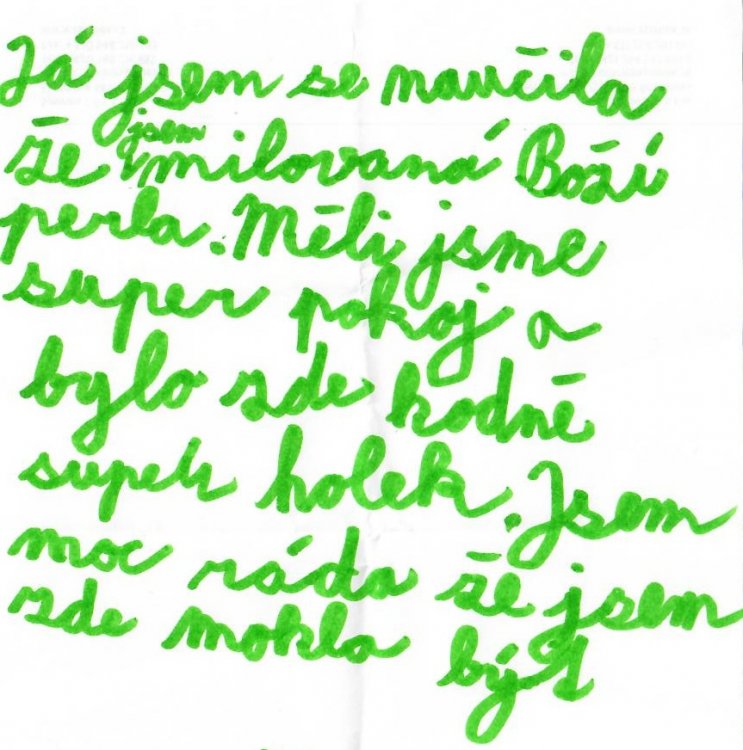 Já jsem se naučila
že jsem milovaná Boží
perla. Měli jsme
super pokoj a
bylo zde hodně
super holek. Jsem
moc ráda že jsem
zde mohla být